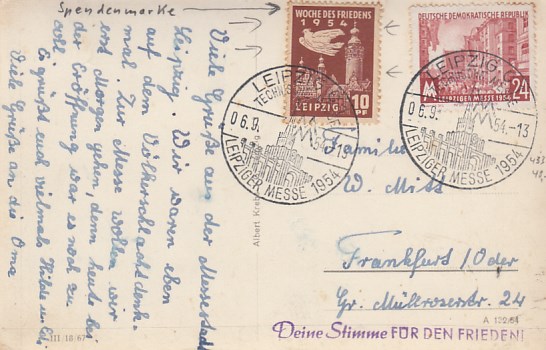 Spendenmarke
WOCHE DES FRIEDENS
1954
LEIPZIG 10
DEUTSCHE DEMOKRATISCHE REPUBLIK
LEIPZIGER MESSE 1954 24
LEIPZIG
TECHNISCHE
06.9. 54.-13
LEIPZIGER MESSE 1954
LEIPZIG
06.9. 54.-13
LEIPZIGER MESSE 1954
Viele Grüße aus der Messestadt
Leipzig. Wir waren eben
auf dem Völkerschlachtdenk-
mal. Zur Messe wollen wir
erst Morgen gehen denn heute bei
der Eröffnung war es noch zu
voll.
Es grüßt euch vielmals Hilde u.
Viele Grüße an die Oma
Albert Kreb
Familie
W. Mitt
Frankfurt/Oder
Gr. Müllroserstr. 24
III/18/67
A 122/54
Deine Stimme FÜR DEN FRIEDEN!